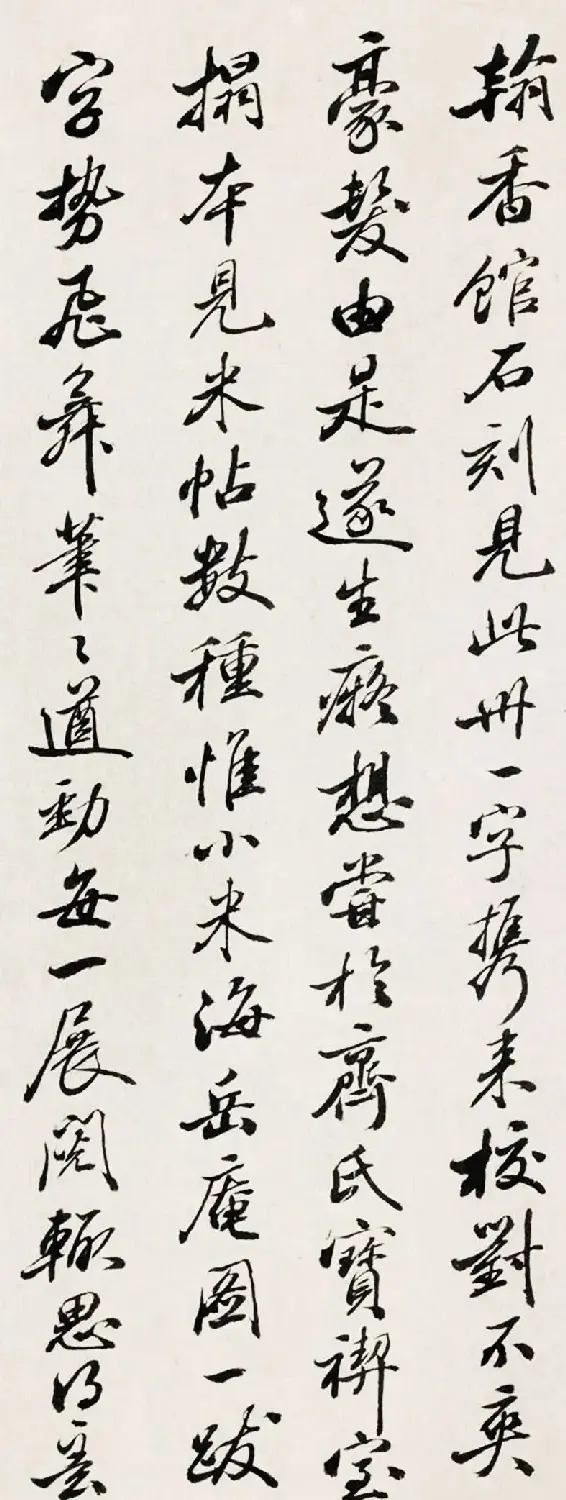 翰香館石刻見此卅一字携来校對不爽
豪髮由是遂生癡想嘗於齊氏寶禊室
搨本見米帖數種惟小米海岳庵圖一跋
字勢飛舞筆〻遒勁每一展閱輒思得